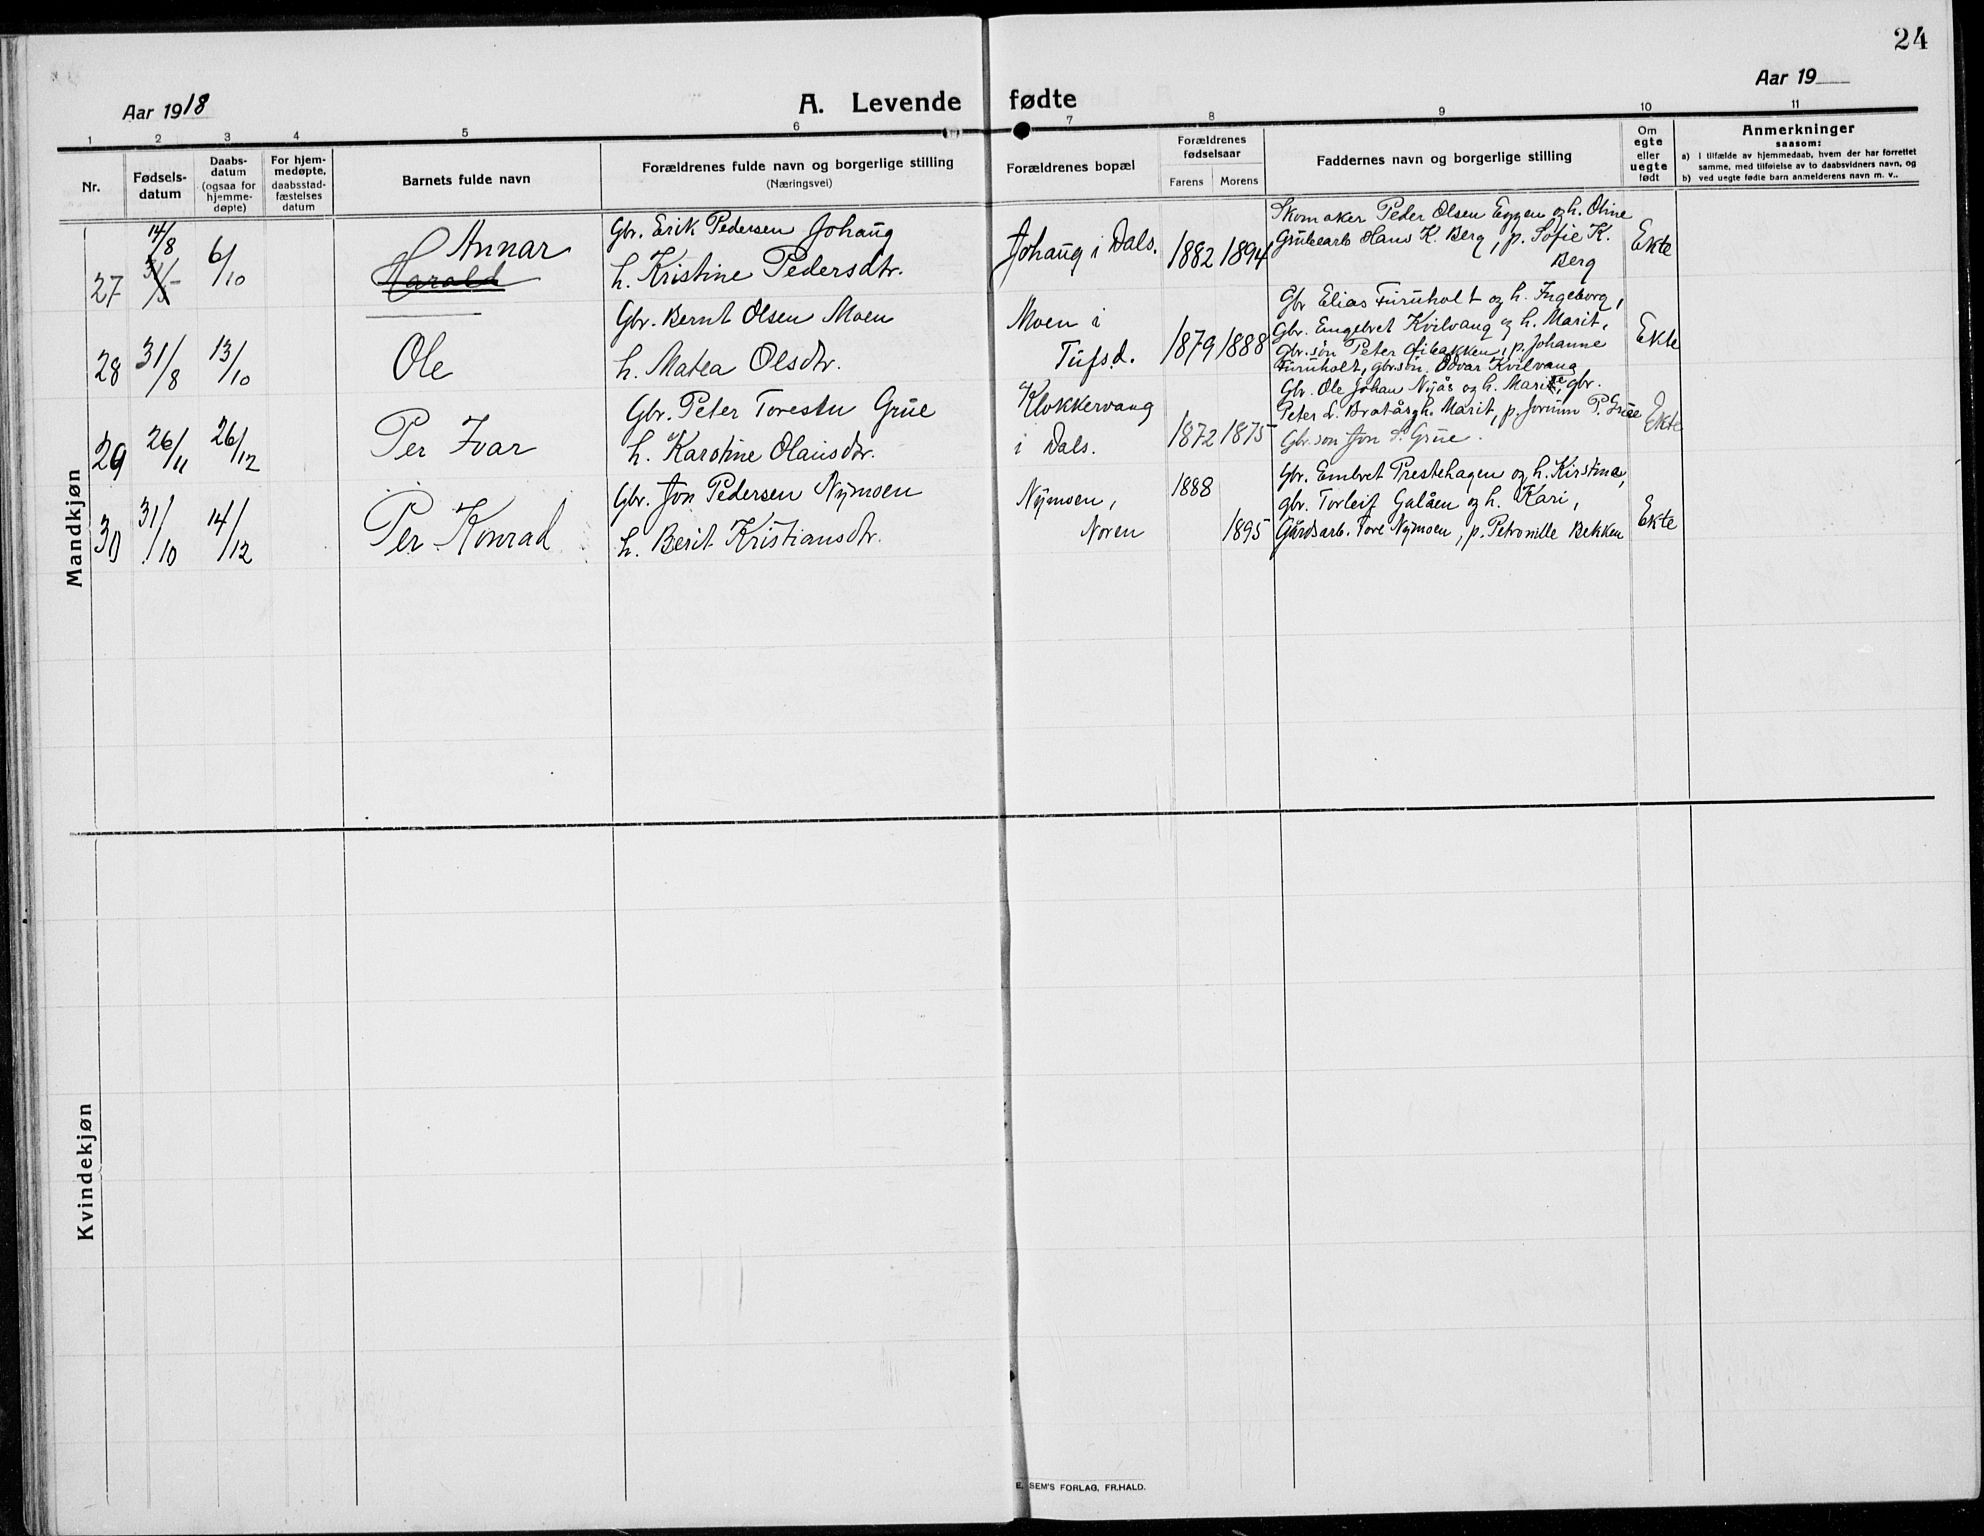 24
Aar 1918
A. Levende fødte
Aar 19
1 2 3 4 5 6 7 8 9 10 11
Nr.
Fødsels-
datum
Daabs-
datum
(ogsaa for
hjemme-
døpte)
For hjem-
medøpte,
daabsstad-
fæstelses
datum
Barnets fulde navn
Forældrenes fulde navn og borgerlige stilling
(Næringsvei)
Forældrenes bopæl
Forældrenes
fødselsaar
Farens Morens
Faddernes navn og borgerlige stilling
Om
egte
eller
uegte
født
Anmerkninger
saasom:
a) I tilfælde av hjemmedaab, hvem der har forrettet
samme, med tilføielse av to daabsvidners navn, og
b) ved uegte fødte barn anmelderens navn m. v..
Mandkjøn
27
14/8
6/10
Annar
Harald
Gbr. Erik Pedersen Johaug
h. Kristine Pedersdtr.
Johaug i Dals.
1882 1894
Skomaker Peder Olsen Eggen og h. Oline
Grubearb Hans K. Berg, p. Sofie K.
Berg
Ekte
28
31/8
13/10
Ole
Gbr. Bernt Olsen Moen
h. Matea Olsdtr.
Moen i
Tufsd.
1879 1888
Gbr Elias Furuholt og h. Ingeborg,
Gbr. Engebret Kvilvang og h. Marit,
gbr.søn Peter , p. Johanne
Furuholt, gbr.søn. Odvar Kvilvang
Ekte
29
26/11
26/12
Per Ivar
Gbr. Peter Torestu Grue
h. Karotine Olausdtr.
Klokkervang
i Dals.
1872 1875
Gbr. Ole Johan Nyås og h. , gbr.
Peter L. h. Marit, p. Jorunn P. Grue
Gbr. søn Jon P. Grue.
Ekte
30
31/10
14/12
Per Konrad
Gbr. Jon Pedersen Nymoen
h. Berit Kristiansdtr.
Nymoen,
Noren
1888
1895
Gbr. Embret Prestehagen og h. Kirstine,
gbr. Torleif Galåen og h. Kari,
Gårdsarb. Tore Nymoen, p. Petronille Bekken
Ekte
Kvindekjøn
E. SEM'S FORLAG, FR.HALD.